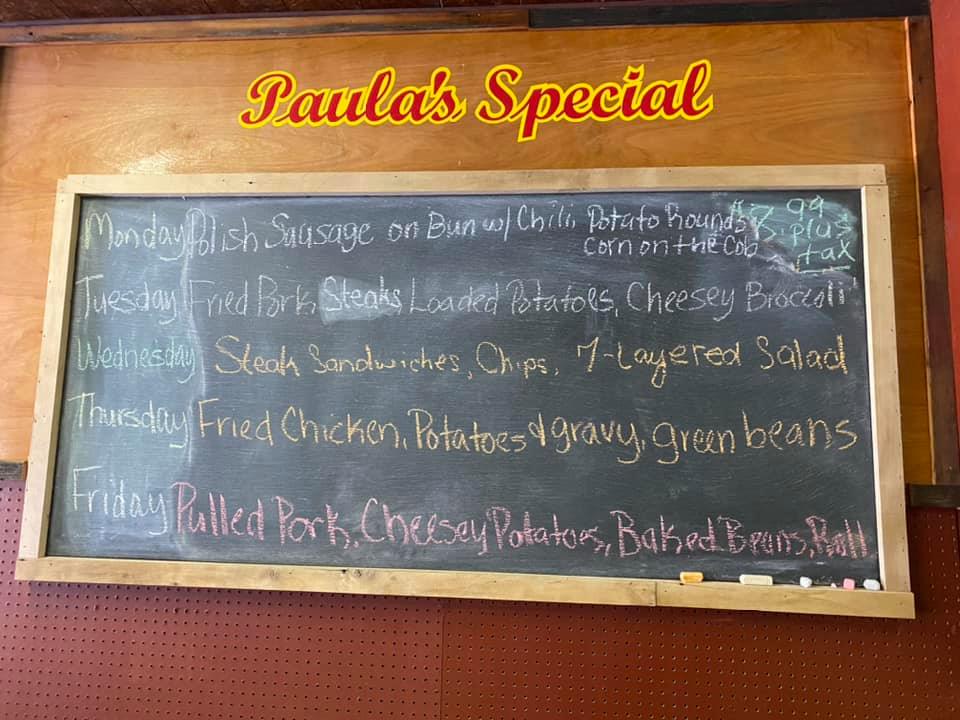 Paula's Special
Monday Polish Sausage on Bun w/ Chili Potato Rounds
corn on the Cob
$8.99
plus
tax
Tuesday Fried Pork Steaks Loaded Potatoes, Cheesey Broccoli
Wednesday Steak Sandwiches, Chips, 7-Layered Salad
Thursday Fried Chicken, Potatoes & gravy, green beans
Friday Pulled Pork, Cheesey Potatoes, Baked Beans, Roll